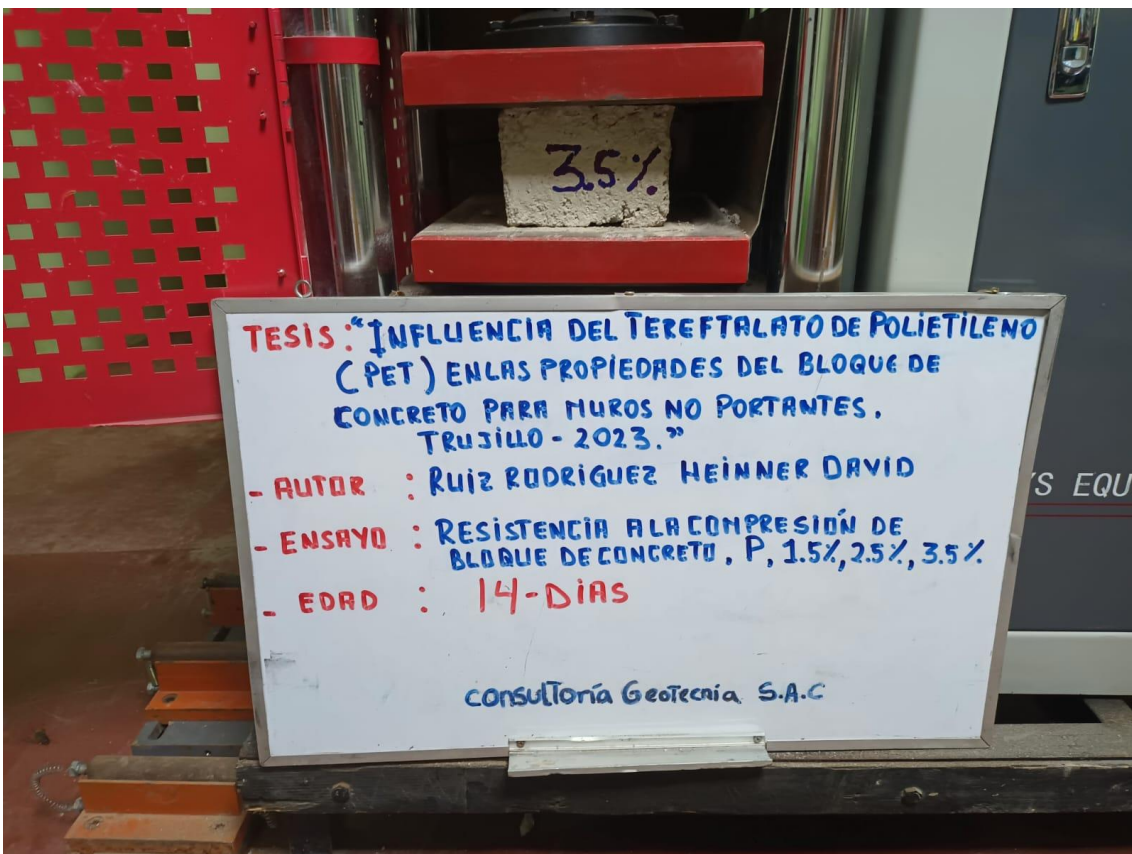 3.5%
TESIS: "INFLUENCIA DEL TEREFTALATO DE POLIETILENO
(PET) EN LAS PROPIEDADES DEL BLOQUE DE
CONCRETO PARA MUROS NO PORTANTES.
TRUJILLO - 2023."
- AUTOR : RUIZ RODRIGUEZ HEINNER DAVID
- ENSAYO : RESISTENCIA A LA COMPRESIÓN DE
BLOQUE DE CONCRETO, P, 1.5%, 2.5%, 3.5%
- EDAD : 14-DIAS
consultoría Geotecnia S.A.C
S EQU